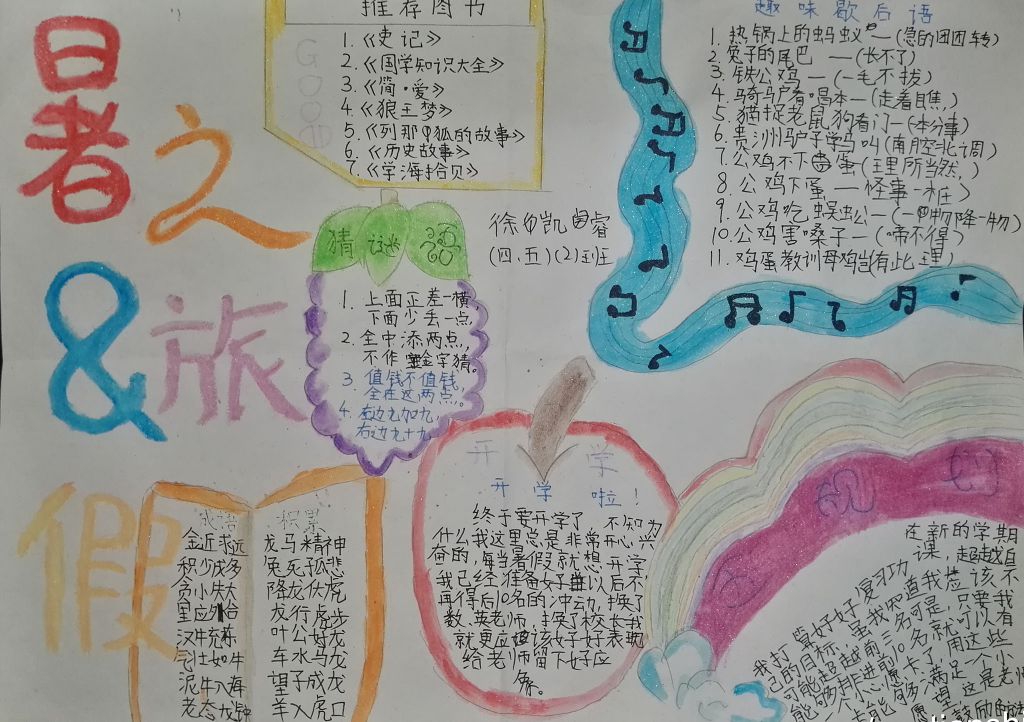 暑之
&旅
假
推荐图书
1.《史记》
2.《国学知识大全》
3.《简·爱》
4.《狼王梦》
5.《列那狐的故事》
6.《历史故事》
7.《学海拾贝》
GOOD
趣味歇后语
1. 热锅上的蚂蚁—(急的团团转)
2. 兔子的尾巴—(长不了)
3. 铁公鸡—(一毛不拔)
4. 骑马看唱本—(走着瞧)
5. 猫捉老鼠狗看门—(本分事)
6. 贵州驴子学马叫(南腔北调)
7. 公鸡不下蛋(理所当然)
8. 公鸡下蛋—怪事一桩)
9. 公鸡吃蜈蚣—(一物降一物)
10. 公鸡害嗓子—(啼不得)
11. 鸡蛋教训母鸡岂有此理)
徐 凯 睿
(四、五)(2)班
猜谜语
1. 上面正差一横,
下面少丢一点,
2. 全中添两点,
不作金字猜。
3 值钱不值钱,
全在这两点。
4. 左边九加九,
右边九十九
成语 积累
金近求远
积少成多
贪小失大
里应外合
汉牛充栋
气壮如牛
泥牛入海
老态龙钟
龙马精神
兔死狐悲
降龙伏虎
龙行虎步
叶公好龙
车水马龙
望子成龙
羊入虎口
开 学
开 学 啦!
终于要开学了 不知为
什么,我这里总是非常开心,兴
奋的,每当暑假就想开学,
我已经准备好难以后不
再得后10名的冲动,换了
数、英老师,换了校长我
就更应该好好表现
给老师留下好应
象。
规 划
在新的学期
课,超越自
我打算好好复习功
己的目标,虽我知道我应该不
可能超越前三名可是,只要我
能够排进前10名就可以有
心愿卡了,用这些
能够满足一个小
愿望这是老师
鼓励